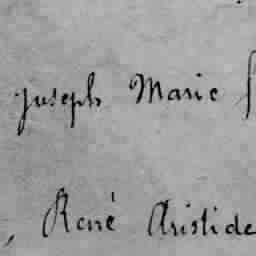 Joseph Marie
, René Aristide